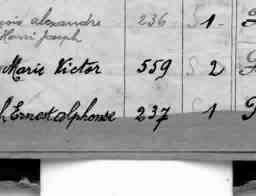 Alexandre 236 1
Henri Joseph
Marie Victor 559 S 2
Ernest Alphonse 237 S 1